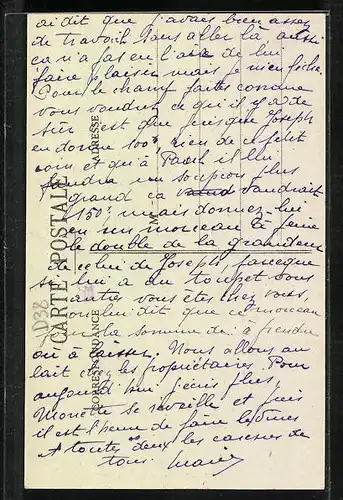 ai dit que j'avais bien assez
de travail sans aller là aussi
ça n'a pas eu l'air de lui
faire plaisir mais je m'en fiche
Pour le champ faites comme
vous voudrez ce qu'il y a de
sûr c'est que puisque Joseph
en donne 100 rien de ce petit
coin et qu'à il lui
faudra un soupçon plus
grand ça vaudrait
150 mais donnez lui
en un morceau à peine
le double de la grandeur
de celui de Joseph, parceque
si lui a du toupet vous
autres vous êtes chez vous,
lui dit que ce morceau
pour la somme de : à prendre
ou à laisser. Nous allons au
lait chez les propriétaires. Pour
aujourd'hui j'écris plus
se réveille et puis
il est l'heure de faire les
A toutes deux les caresses de
tous. Marie
CARTE POSTALE
CORRESPONDANCE
ADRESSE
D38